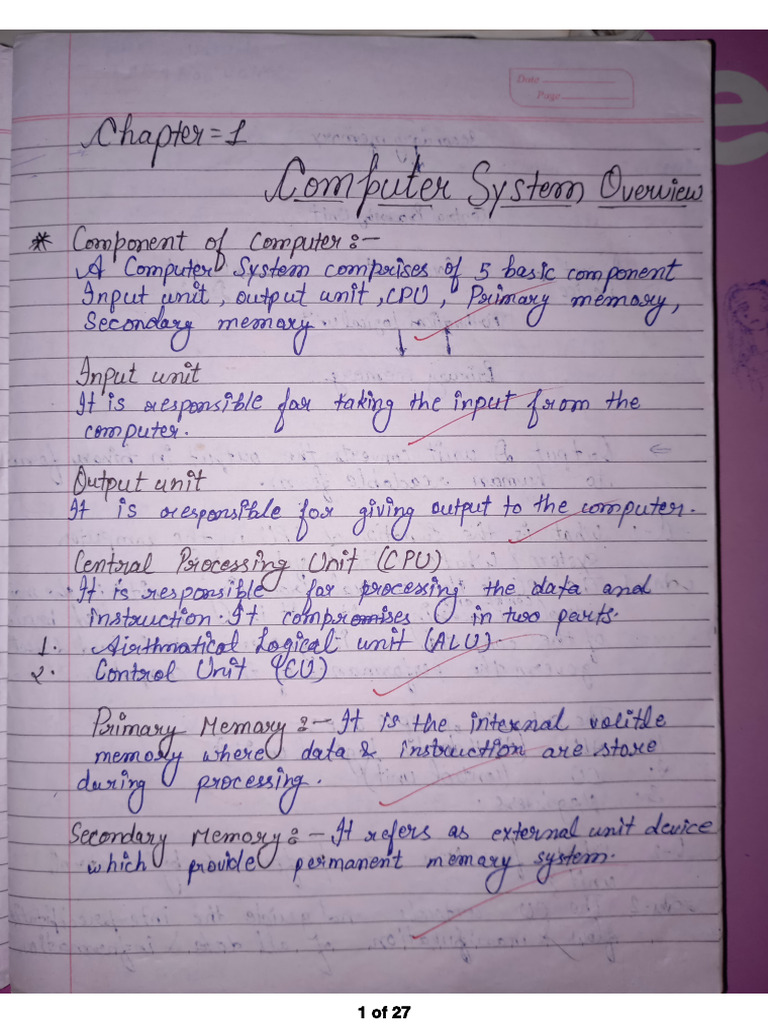 Date
Page
Chapter = 1
Computer System Overview
* Component of Computer :-
A Computer System comprises of 5 basic component
Input unit, output unit, CPU, Primary memory,
Secondary memory.
Input unit
It is responsible for taking the input from the
computer.
Output unit
It is responsible for giving output to the computer.
Central Processing Unit (CPU)
It is responsible for processing the data and
instruction. It compromises in two parts.
1. Airthmatical Logical unit (ALU).
2. Control Unit (CU)
Primary Memary :- It is the internal volitle
memory where data & instruction are store
during processing.
Secondary Memary :- It refers as external unit device
which provide permanent memary system.
1 of 27